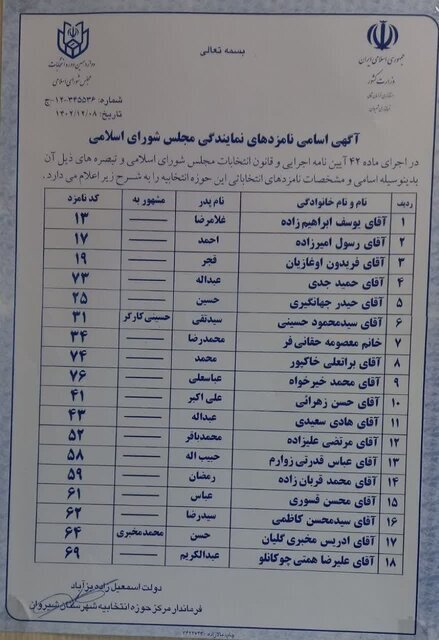 بسمه تعالی
جمهوری اسلامی ایران
وزارت کشور
دوازدهمین دوره انتخابات
مجلس شورای اسلامی
شماره: ۱۲۰۳۴۵۵۳۶-ج
تاریخ: ۱۴۰۲/۱۲/۰۸
آگهی اسامی نامزدهای نمایندگی مجلس شورای اسلامی
در اجرای ماده ۴۲ آیین نامه اجرایی و قانون انتخابات مجلس شورای اسلامی و تبصره های ذیل آن
بدینوسیله اسامی و مشخصات نامزدهای انتخاباتی این حوزه انتخابیه را به شرح زیر اعلام می دارد.
ردیف نام و نام خانوادگی نام پدر مشهور به کد نامزد
۱ آقای یوسف ابراهیم زاده غلامرضا ــــــ ۱۳
۲ آقای رسول امیرزاده احمد ــــــ ۱۷
۳ آقای فریدون اوغازیان قجر ــــــ ۱۹
۴ آقای حمید جدی عبداله ــــــ ۷۳
۵ آقای حیدر جهانگیری حسین ــــــ ۲۵
۶ آقای سیدمحمود حسینی سیدتقی حسینی کارگر ۳۱
۷ خانم معصومه حقانی فر محمدرضا ــــــ ۳۴
۸ آقای براتعلی خاکپور محمد ــــــ ۷۴
۹ آقای محمد خیرخواه عباسعلی ــــــ ۷۶
۱۰ آقای حسن زهرائی علی اکبر ــــــ ۴۱
۱۱ آقای هادی سعیدی عبداله ــــــ ۴۳
۱۲ آقای مرتضی علیزاده محمدباقر ــــــ ۵۲
۱۳ آقای عباس قدرتی زوارم حبیب اله ــــــ ۵۸
۱۴ آقای محمد قربان زاده رمضان ــــــ ۵۹
۱۵ آقای محسن قسوری عباس ــــــ ۶۱
۱۶ آقای سیدمحسن کاظمی سیدرضا ــــــ ۶۲
۱۷ آقای ادریس مخبری گلیان حسن محمدمخبری ۶۴
۱۸ آقای علیرضا همتی چوکانلو عبدالکریم ــــــ ۶۹
دولت اسمعیل زاده یزآباد
فرماندار مرکز حوزه انتخابیه شهرستان شیروان